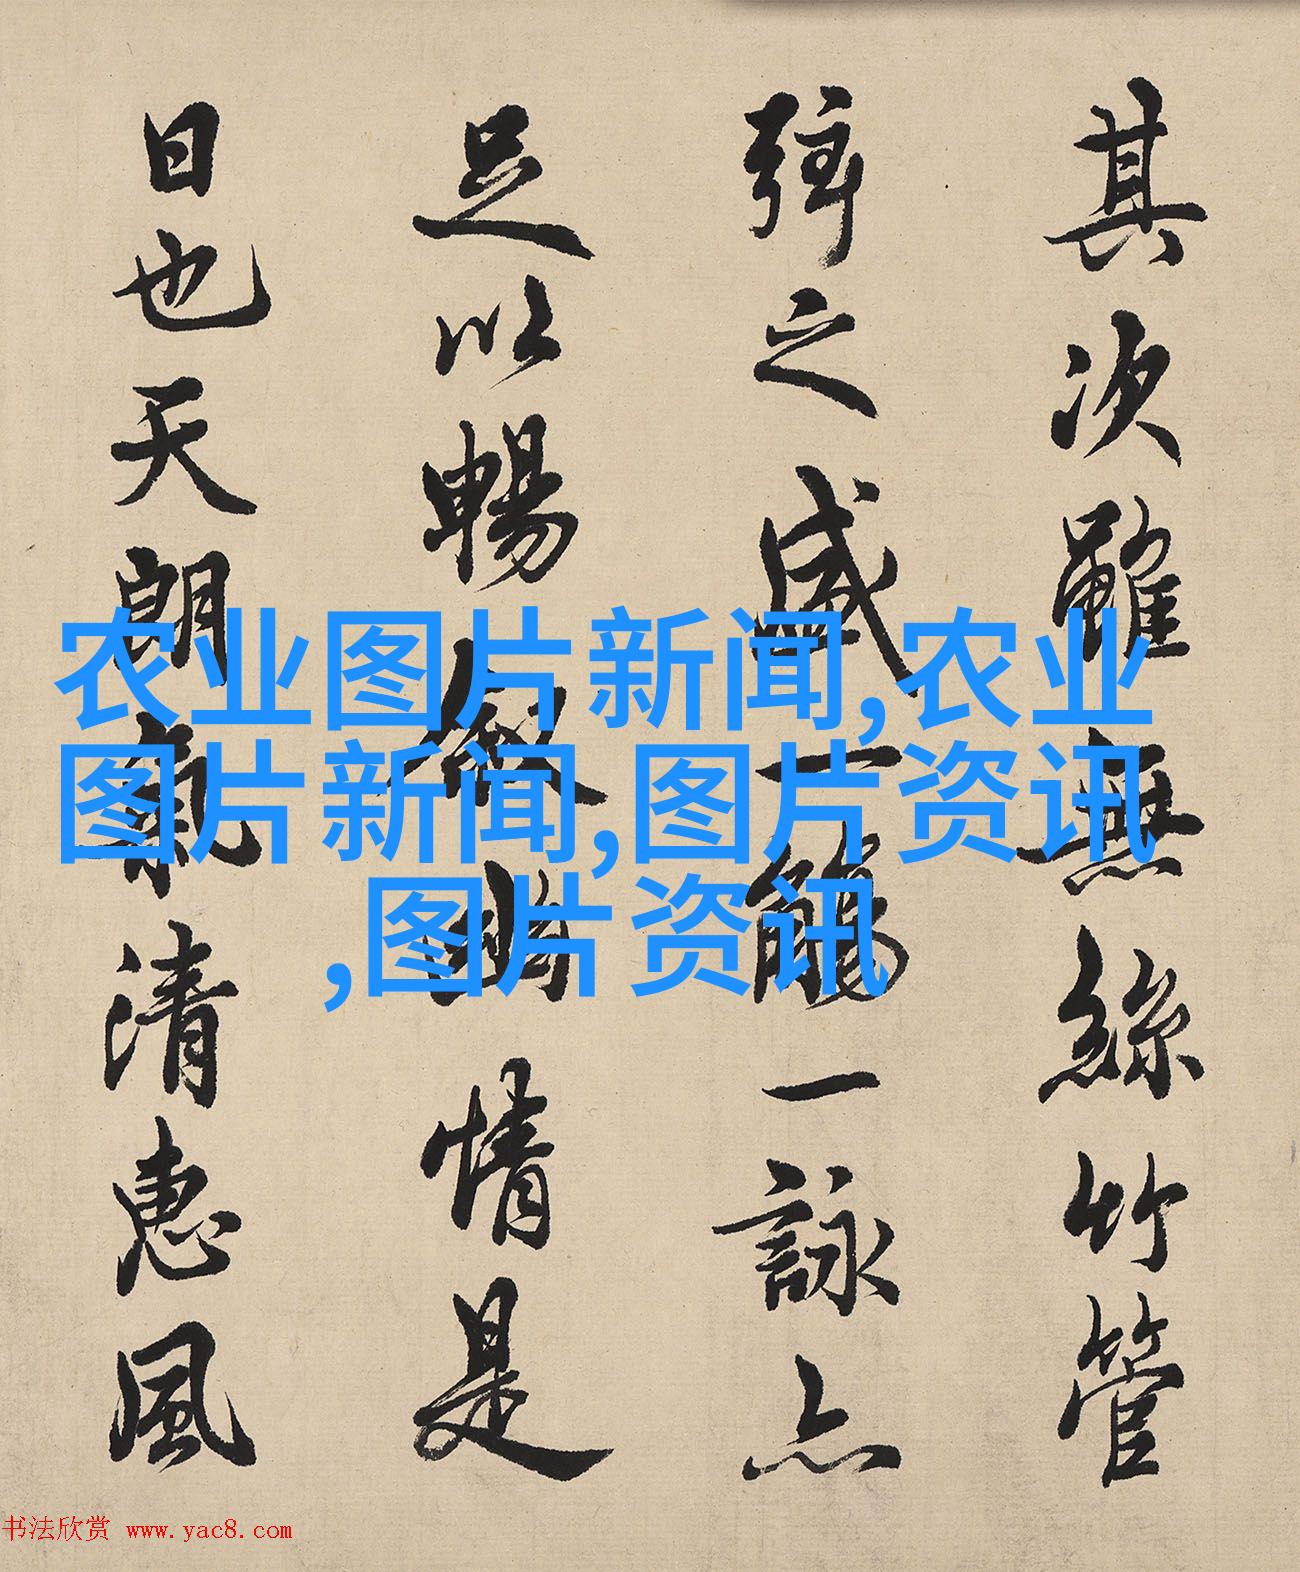 其次雖無絲竹管
弦之盛一觴一詠亦
足以暢敘幽情是
日也天朗氣清惠風
农业图片新闻,农业
图片新闻,图片资讯
,图片资讯
书法欣赏 www.yac8.com